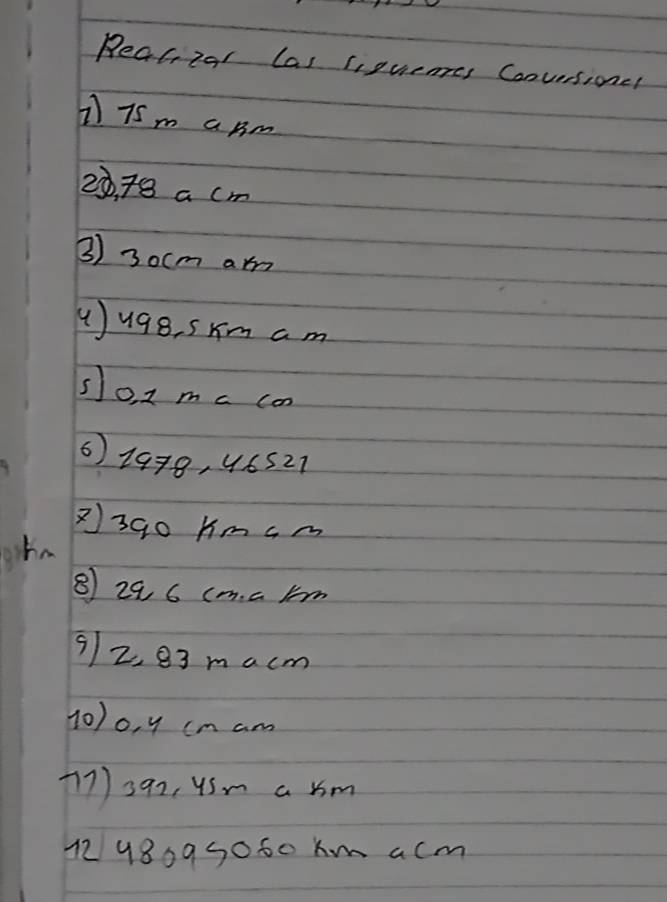 Realizar las siguientes Conversiones
1) 75 m a km
2) 0,78 a cm
3) 30cm a km
4) 498,5 km a m
5) 0,1 m a cm
6) 1978,46521
7) 390 km a m
8) 29,6 cm a km
9) 2,83 m a cm
10) 0,4 cm a m
11) 392,45m a km
12) 48095060 km a cm
km